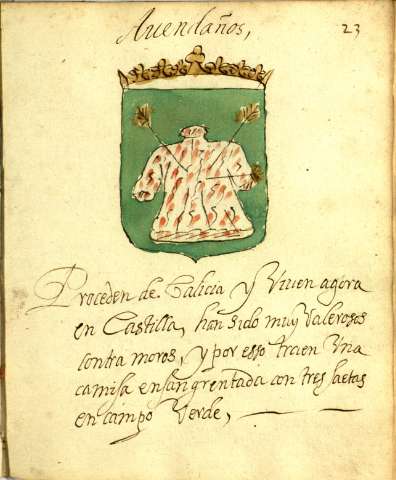 Auendaños,
23
Proceden de Galicia y Viuen agora
en Castilla, han sido muy Valerosos
contra moros, y por esso traen Vna
camisa ensangrentada con tres saetas
en campo Verde,